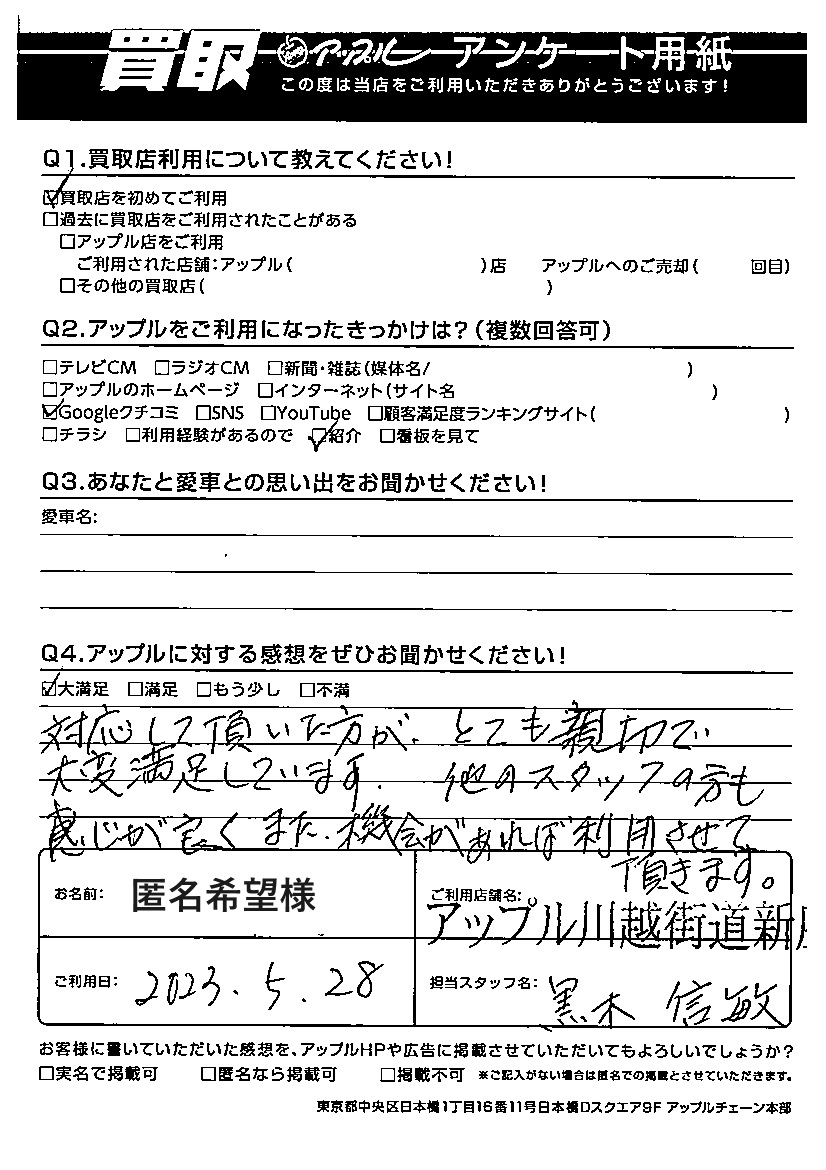 買取 アップル アンケート用紙
この度は当店をご利用いただきありがとうございます!
Q1.買取店利用について教えてください!
☑買取店を初めてご利用
□過去に買取店をご利用されたことがある
□アップル店をご利用
ご利用された店舗:アップル( )店 アップルへのご売却( 回目)
□その他の買取店( )
Q2.アップルをご利用になったきっかけは?(複数回答可)
□テレビCM □ラジオCM □新聞・雑誌(媒体名/ )
□アップルのホームページ □インターネット(サイト名 )
☑Googleクチコミ □SNS □YouTube □顧客満足度ランキングサイト( )
□チラシ □利用経験があるので ☑紹介 □看板を見て
Q3.あなたと愛車との思い出をお聞かせください!
愛車名:
Q4.アップルに対する感想をぜひお聞かせください!
☑大満足 □満足 □もう少し □不満
対応して頂いた方が、とても親切で
大変満足しています。 他のスタッフの方も
感じが良く また、機会があれば利用させて
頂きます。
お名前: 匿名希望様
ご利用店舗名:
アップル川越街道新
ご利用日: 2023.5.28
担当スタッフ名: 黒木 信敏
お客様に書いていただいた感想を、アップルHPや広告に掲載させていただいてもよろしいでしょうか?
□実名で掲載可 □匿名なら掲載可 □掲載不可 ※ご記入がない場合は匿名での掲載とさせていただきます。
東京都中央区日本橋1丁目16番11号日本橋Dスクエア9F アップルチェーン本部